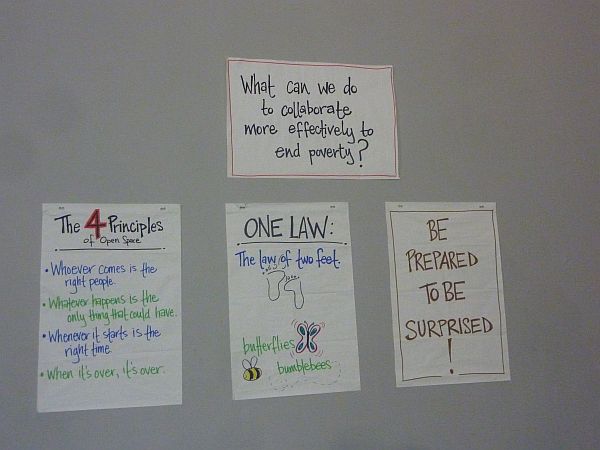 What can we do
to collaborate
more effectively to
end poverty?
The 4 Principles
of Open Space
• Whoever comes is the
right people.
• Whatever happens is the
only thing that could have.
• Whenever it starts is the
right time.
• When it's over, it's over.
ONE LAW:
The law of two feet.
butterflies
bumblebees
BE
PREPARED
TO BE
SURPRISED
!